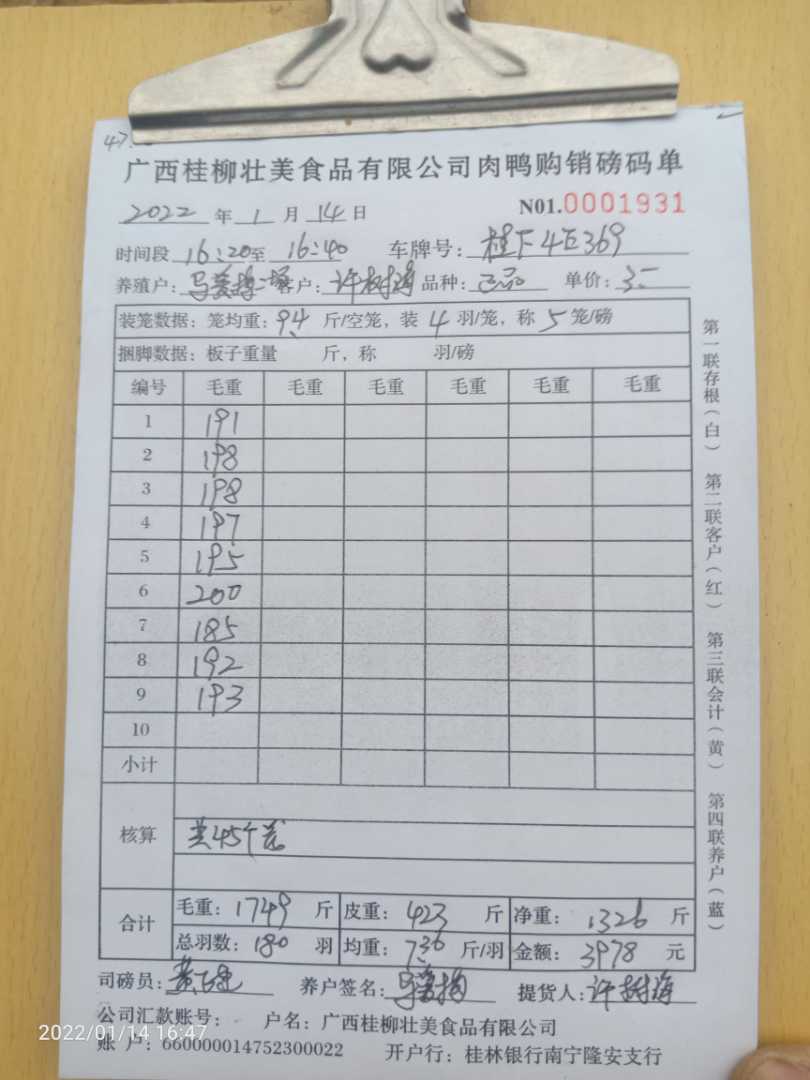 47.
广西桂柳壮美食品有限公司肉鸭购销磅码单
2022 年 1 月 14 日 N01.0001931
时间段 16:20 至 16:40 车牌号:
养殖户: 客户: 许树海 品种: 正品 单价: 3.
装笼数据: 笼均重: 9.4 斤/空笼, 装 4 羽/笼, 称 5 笼/磅
捆脚数据: 板子重量 斤, 称 羽/磅
编号 毛重 毛重 毛重 毛重 毛重 毛重
1 191
2 198
3 198
4 197
5 195
6 200
7 185
8 192
9 193
10
小计
核算 共45个笼
合计 毛重: 1749 斤 皮重: 423 斤 净重: 1326 斤
总羽数: 180 羽 均重: 7.36 斤/羽 金额: 3978 元
司磅员: 养户签名: 提货人: 许树海
公司汇款账号: 户名: 广西桂柳壮美食品有限公司
账 户: 660000014752300022 开户行: 桂林银行南宁隆安支行
2022/01/14 16:47
第一联存根(白) 第二联客户(红) 第三联会计(黄) 第四联养户(蓝)